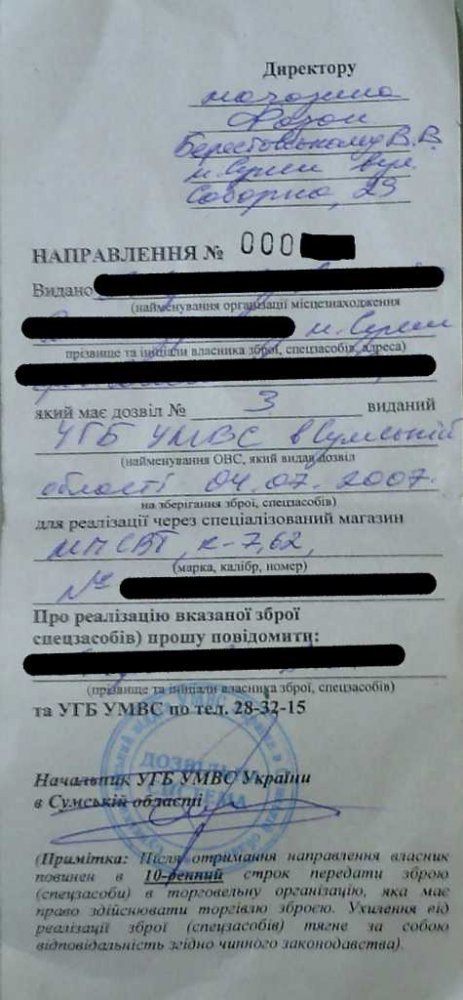 Директору
магазина
Фазан
Берестовському В.В.
м. Суми вул.
Соборна, 29
НАПРАВЛЕННЯ № 000
Видано
(найменування організації місцезнаходження
м. Суми
прізвище та ініціали власника зброї, спецзасобів, адреса)
який має дозвіл № 3 виданий
УГБ УМВС в Сумській
(найменування ОВС, який видав дозвіл
області 04.07.2007.
на зберігання зброї, спецзасобів)
для реалізації через спеціалізований магазин
к-7,62,
(марка, калібр, номер)
№
Про реалізацію вказаної зброї
спецзасобів) прошу повідомити:
(прізвище та ініціали власника зброї, спецзасобів)
та УГБ УМВС по тел. 28-32-15
ДОЗВІЛЬНА
СИСТЕМА
Начальник УГБ УМВС України
в Сумській області
(Примітка: Після отримання направлення власник
повинен в 10-ренний строк передати зброю
(спецзасоби) в торговельну організацію, яка має
право здійснювати торгівлю зброєю. Ухилення від
реалізації зброї (спецзасобів) тягне за собою
відповідальність згідно чинного законодавства).